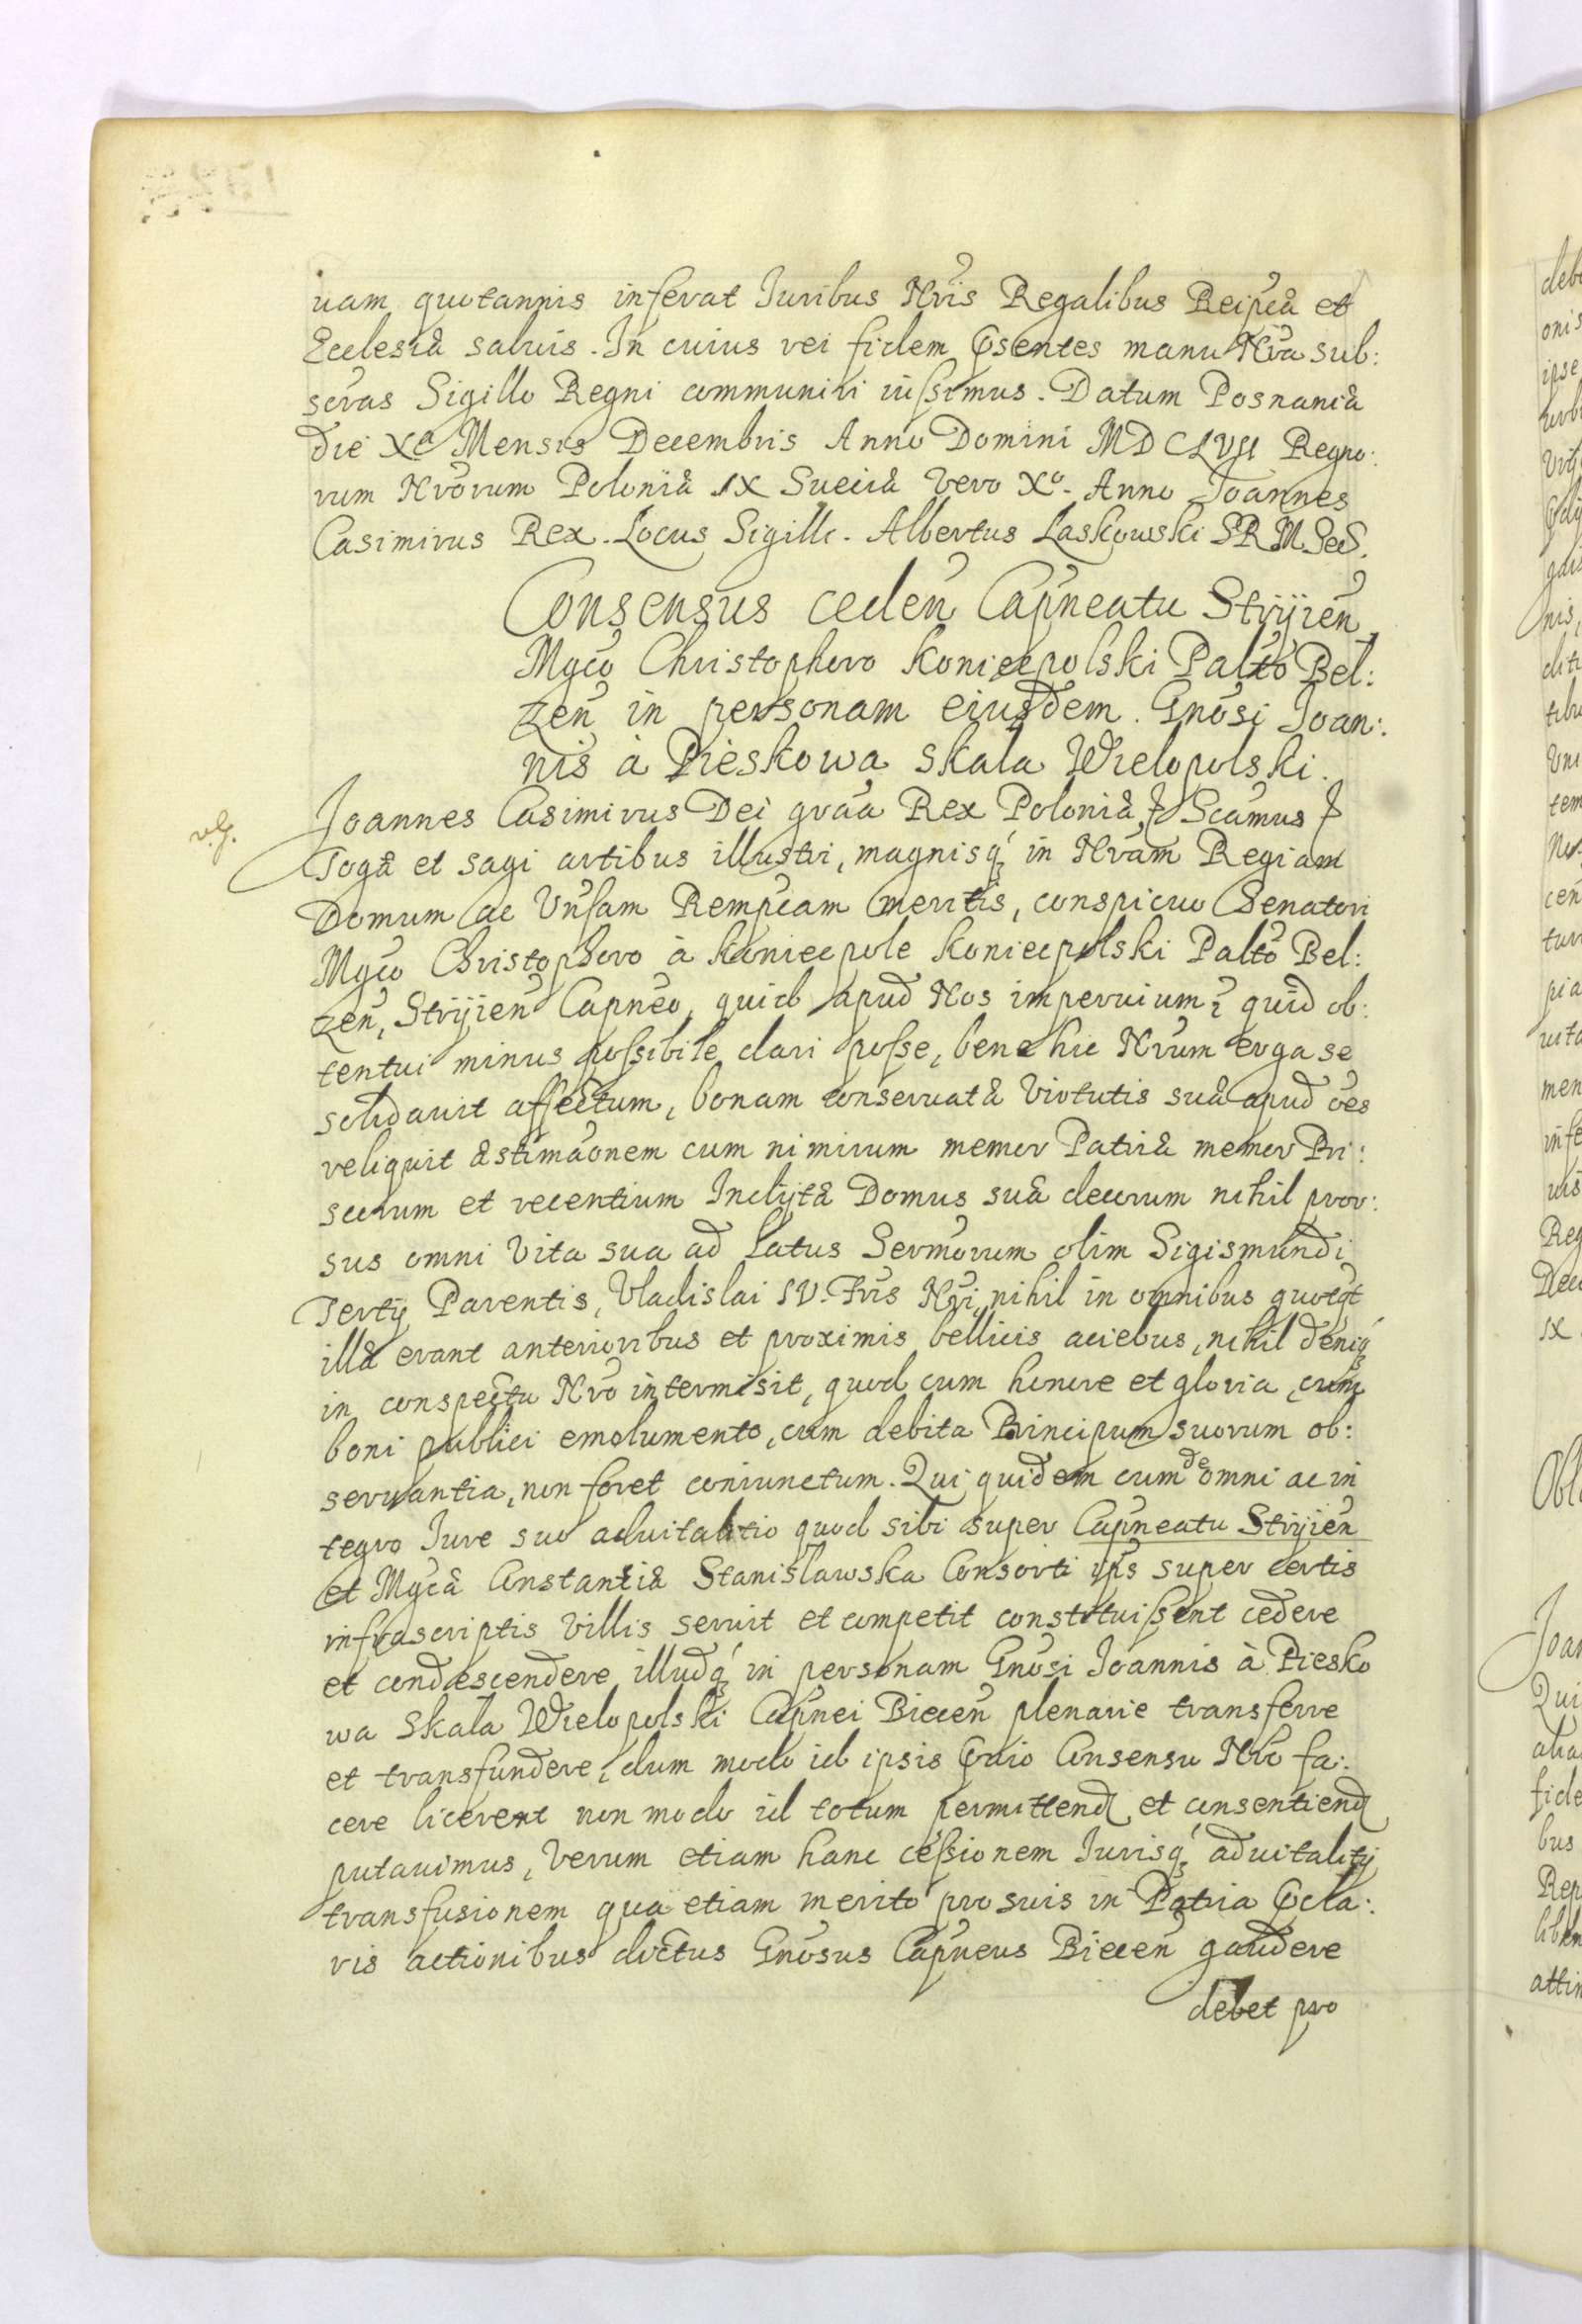 uam quotannis inferat Iuribus Nris Regalibus Reipcæ et
Ecclesiæ saluis. In cuius rei fidem Psentes manu Nra sub:
scras Sigillo Regni communiri iussimus. Datum Posnaniæ
die Xa Mensis Decembris Anno Domini MDCLVII Regno:
rum Nrorum Poloniæ IX Sueciæ Vero Xo. Anno Joannes
Casimirus Rex. Locus Sigilli. Albertus Laskowski SRM Secs.
Consensus ceden Capneatu Stryien
Mgco Christophoro Koniecpolski Palto Bel:
zen in personam eiusdem. Gnosi Joan:
nis à Pieskowa Skala Wielopolski.
Joannes Casimirus Dei graa Rex Poloniæ, Scamus
Togæ et sagi artibus illustri, magnisq in Nram Regiam
Domum ac Vnsam Rempcam meritis, conspicuo Senatori
Mgco Christophoro à Koniecpole Koniecpolski Palto Bel:
zen, Stryien Capneo, quid apud Nos imperuium? quid ob:
tentui minus possibile dari posse, bene hic Nrum erga se
solidauit affectum, bonam conseruatæ Virtutis suæ apud oes
reliquit æstimaonem cum nimirum memor Patriæ memor Pri:
scorum et recentium Inclytæ Domus suæ decorum nihil pror:
sus omni Vita sua ad Latus Sermorum olim Sigismundi
Tertij Parentis, Vladislai IV. Fris Nri, nihil in omnibus quotqt
illæ erant anterioribus et proximis bellicis aciebus, nihil deniq
in conspectu Nro intermisit, quod cum honore et gloria, cum
boni publici emolumento, cum debita Principum suorum ob:
seruantia, non foret coniunctum. Qui quidem cum de omni ac in
tegro Iure suo aduitalitio quod sibi super Capneatu Stryien
et Mgcæ Constantiæ Stanislawska Consorti ips super certis
infrascriptis Villis seruit et competit constituissent cedere
et condescendere illudq in personam Gnosi Joannis à Piesko
wa Skala Wielopolski Capnei Biecen plenarie transferre
et transfundere, dum modo id ipsis Pvio Consensu Nro fa:
cere licerent non modo id totum permittend et consentiend
putauimus, Verum etiam hanc cessionem Iurisq aduitalitij
transfusionem qua etiam merito pro suis in Patria Pcla:
ris actionibus doctus Gnosus Capneus Biecen gaudere
debet pro